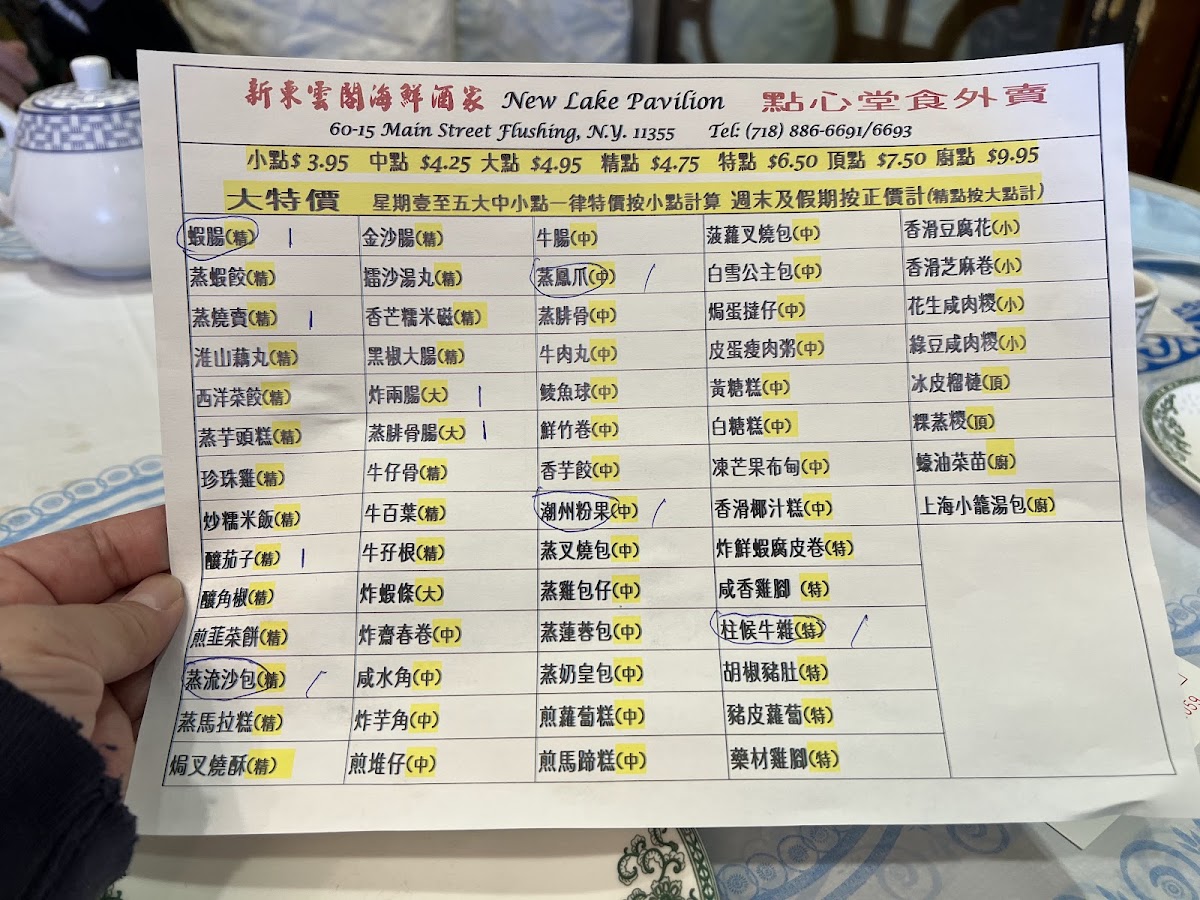 新東雲閣海鮮酒家 New Lake Pavilion 點心堂食外賣
60-15 Main Street Flushing, N.Y. 11355 Tel: (718) 886-6691/6693
小點$ 3.95 中點 $4.25 大點 $4.95 精點 $4.75 特點 $6.50 頂點 $7.50 廚點 $9.95
大特價 星期壹至五大中小點一律特價按小點計算 週末及假期按正價計(精點按大點計)
蝦腸(精) 金沙腸(精) 牛腸(中) 菠蘿叉燒包(中) 香滑豆腐花(小)
蒸蝦餃(精) 擂沙湯丸(精) 蒸鳳爪(中) 白雪公主包(中) 香滑芝麻卷(小)
蒸燒賣(精) 香芒糯米磁(精) 蒸腓骨(中) 焗蛋撻仔(中) 花生咸肉糉(小)
淮山藕丸(精) 黑椒大腸(精) 牛肉丸(中) 皮蛋瘦肉粥(中) 綠豆咸肉糉(小)
西洋菜餃(精) 炸兩腸(大) 鯪魚球(中) 黃糖糕(中) 冰皮榴槤(頂)
蒸芋頭糕(精) 蒸腓骨腸(大) 鮮竹卷(中) 白糖糕(中) 粿蒸糉(頂)
珍珠雞(精) 牛仔骨(精) 香芋餃(中) 凍芒果布甸(中) 蠔油菜苗(廚)
炒糯米飯(精) 牛百葉(精) 潮州粉果(中) 香滑椰汁糕(中) 上海小籠湯包(廚)
釀茄子(精) 牛孖根(精) 蒸叉燒包(中) 炸鮮蝦腐皮卷(特)
釀角椒(精) 炸蝦條(大) 蒸雞包仔(中) 咸香雞腳 (特)
煎韮菜餅(精) 炸齋春卷(中) 蒸蓮蓉包(中) 柱候牛雜(特)
蒸流沙包(精) 咸水角(中) 蒸奶皇包(中) 胡椒豬肚(特)
蒸馬拉糕(精) 炸芋角(中) 煎蘿蔔糕(中) 豬皮蘿蔔(特)
焗叉燒酥(精) 煎堆仔(中) 煎馬蹄糕(中) 藥材雞腳(特)